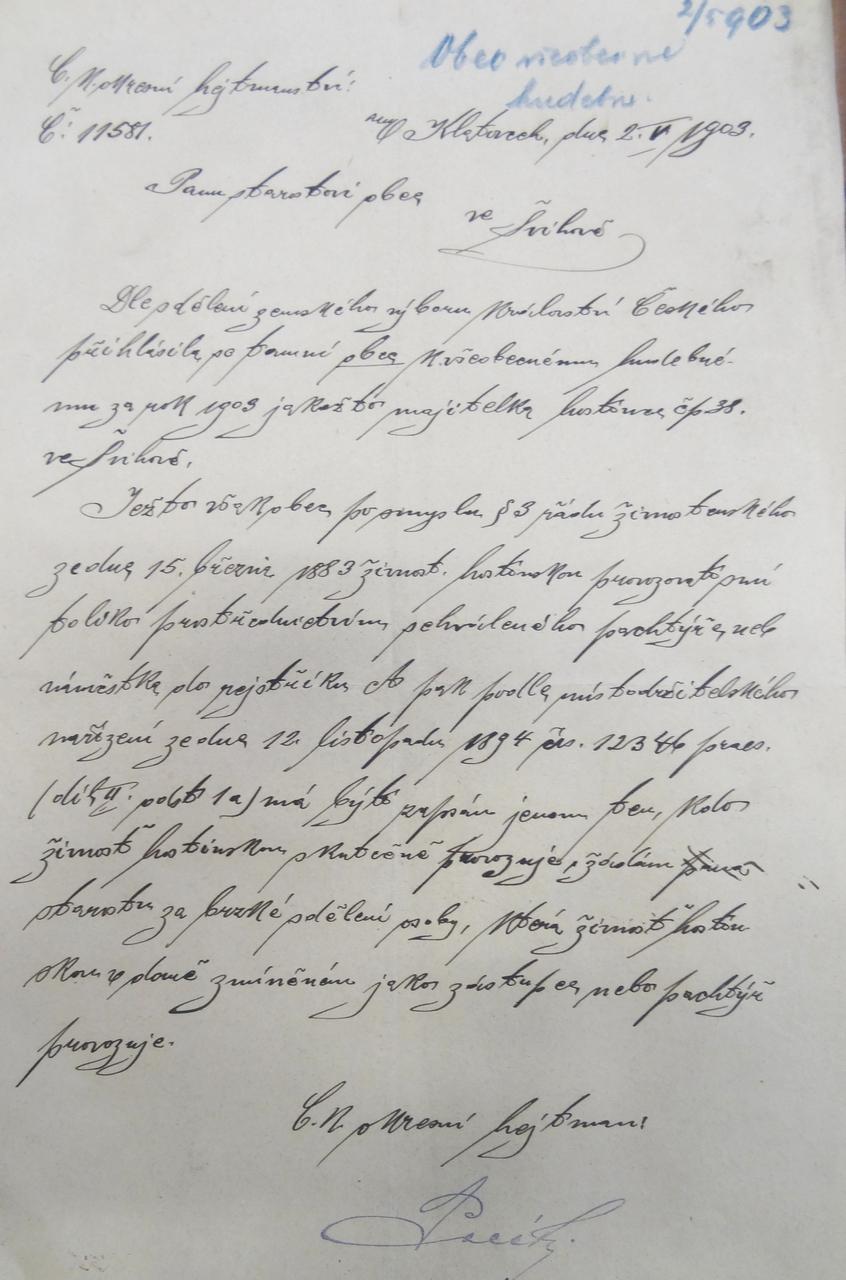 2/5 903
Obec všeobecné
hudebn.
C. K. okresní hejtmanství:
Č: 11581.
V Klatovech, dne 2. V. 1903.
Panu starostovi obce
ve Švihově
Dle sdělení zemského výboru Království Českého
přihlásila se tamní obec K všeobecnému hudebné-
mu za rok 1903 jakožto majitelka hostince čp 38.
ve Švihově.
Ježto však obec po smyslu § 3 řádu živnostenského
ze dne 15. března 1883 živnost. hostinskou provozovati smí
toliko prostřednictvím schváleného pachtýře neb
náměstka do rejstříku A pak podle místodržitelského
nařízení ze dne 12. listopadu 1894 čís. 12346 praes.
(díl II. odst 1a) má býti zapsán jenom ten, kdo
živnosť hostinskou skutečně provozuje, žádám pana
starostu za brzké sdělení osoby, která živnosť hostin
skou v domě zmíněném jako zástupce nebo pachtýř
provozuje.
C. K. okresní hejtman: